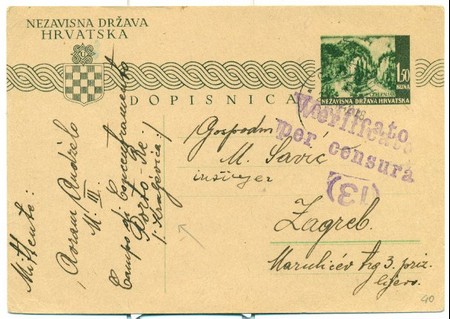 NEZAVISNA DRŽAVA
HRVATSKA
DOPISNICA
1.50
KUNA
NEZAVISNA DRŽAVA HRVATSKA
Verificato
per censura
(13)
Gospodin
M. Savić
inžinjer
Zagreb.
Marulićev trg 3. priz.
lijevo.
Mittente:
M. II
Campo di Concentramento
Porto Re
(Kraljevica)
40